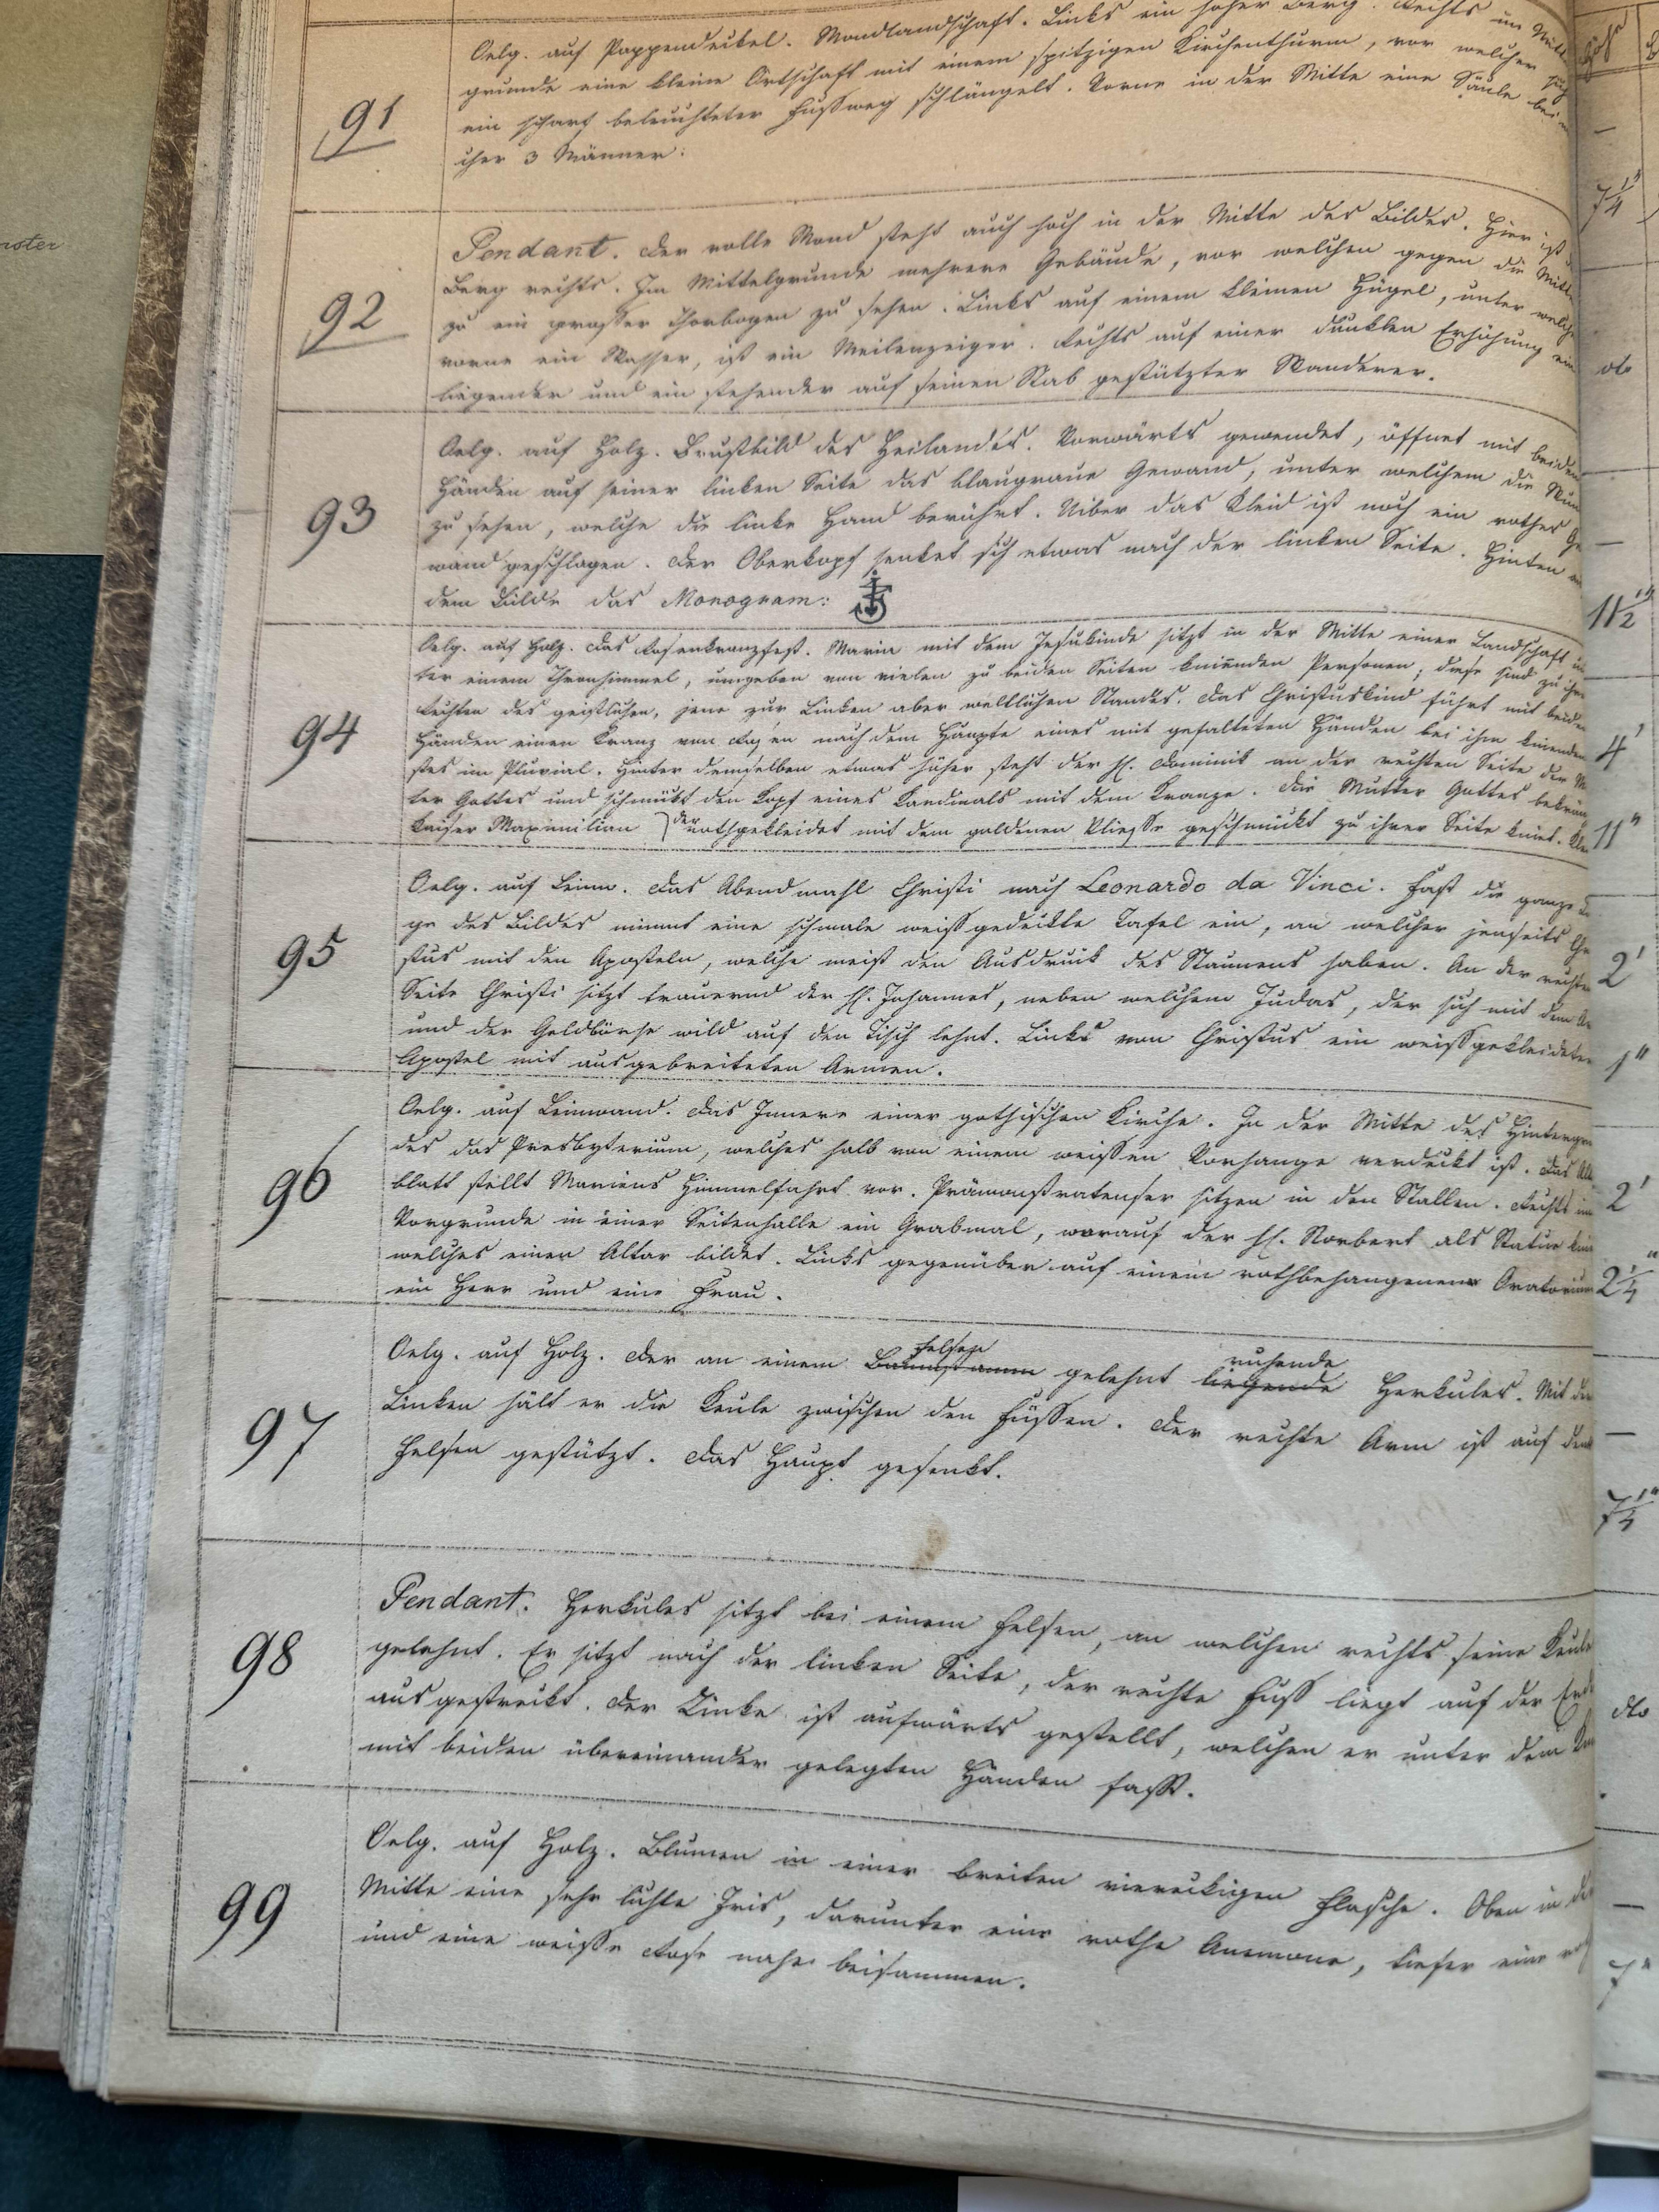 91
Oelg. auf Pappendeckel. Mondlandschaft. Links ein hoher Berg. Rechts im Mitt
grunde eine kleine Ortschaft mit einem spitzigen Kirchenthurm, vor welcher sich
ein scharf beleuchteter Fußweg schlängelt. Vorne in der Mitte eine Säule bei
cher 3 Männer.
92
Pendant. Der volle Mond steht auch hoch in der Mitte des Bildes. Hier ist
Berg rechts. Im Mittelgrunde mehrere Gebäude, vor welchen gegen die Mitte
zu ein großer Thorbogen zu sehen. Links auf einem kleinen Hügel, unter welche
vorne ein Wasser, ist ein Meilenzeiger. Rechts auf einer dunklen Erhöhung ein
liegender und ein stehender auf seinen Stab gestützter Wanderer.
93
Oelg. auf Holz. Brustbild des Heilandes. Vorwärts gewendet, öffnet mit beiden
Händen auf seiner linken Seite das blaugraue Gewand, unter welchem die Wun
zu sehen, welche die linke Hand berührt. Uiber das Kleid ist noch ein rothes Ge
wand geschlagen. Der Oberkopf senket sich etwas nach der linken Seite. Hinten
dem Bilde das Monogram:
94
Oelg. auf Holz. Das Rosenkranzfest. Maria mit dem Jesukinde sitzt in der Mitte einer Landschaft un
ter einem Thronhimmel, umgeben von vielen zu beiden Seiten knienden Personen; diese sind zu ihrer
Rechten des geistlichen, jene zur Linken aber weltlichen Standes. Das Christuskind führt mit beiden
Händen einen Kranz von Rosen nach dem Haupte eines mit gefalteten Händen bei ihm knienden
stes im Pluvial. Hinter demselben etwas höher steht der H. Dominik an der rechten Seite der Mut
ter Gottes und schmückt den Kopf eines Kardinals mit dem Kranze. Die Mutter Gottes bekrän
Kaiser Maximilian der rothgekleidet mit dem goldenen Vließe geschmückt zu ihrer Seite kniet.
95
Oelg. auf Leinw. Das Abendmahl Christi nach Leonardo da Vinci. Fast die ganze Län
ge des Bildes nimmt eine schmale weißgedeckte Tafel ein, an welcher jenseits Chri
stus mit den Aposteln, welche meist den Ausdruck des Staunens haben. An der rechten
Seite Christi sitzt trauernd der H. Johannes, neben welchem Judas, der sich mit dem
und der Geldbörse wild auf den Tisch lehnt. Links von Christus ein weißgekleideter
Apostel mit ausgebreiteten Armen.
96
Oelg. auf Leinwand. Das Innere einer gothischen Kirche. In der Mitte des Hintergrun
des das Presbyterium, welches halb von einem weißen Vorhange verdeckt ist. Das
blatt stellt Mariens Himmelfahrt vor. Prämonstratenser sitzen in den Stallen. Rechts im
Vorgrunde in einer Seitenhalle ein Grabmal, worauf der H. Norbert als Statue
welches einen Altar bildet. Links gegenüber auf einem rothbehangenen Oratorium
ein Herr und eine Frau.
97
Felsen ruhende
Oelg. auf Holz. Der an einem Baumstamm gelehnt liegende Herkules. Mit der
Linken hält er die Keule zwischen den Füßen. Der rechte Arm ist auf dem
Felsen gestützt. Das Haupt gesenkt.
98
Pendant. Herkules sitzt bei einem Felsen, an welchen rechts seine Keule
gelehnt. Er sitzt nach der linken Seite, der rechte Fuß liegt auf der Erde
ausgestreckt. Der Linke ist aufwärts gestellt, welchen er unter dem Knie
mit beiden übereinander gelegten Händen faßt.
99
Oelg. auf Holz. Blumen in einer breiten viereckigen Flasche. Oben in der
Mitte eine sehr lichte Iris, darunter eine rothe Anemone, tiefer eine
und eine weiße Rose nahe beisammen.
7 1/4"
dto
11 1/2"
4'
11"
2'
1"
2'
2 1/4"
7 1/4"
dto
7"